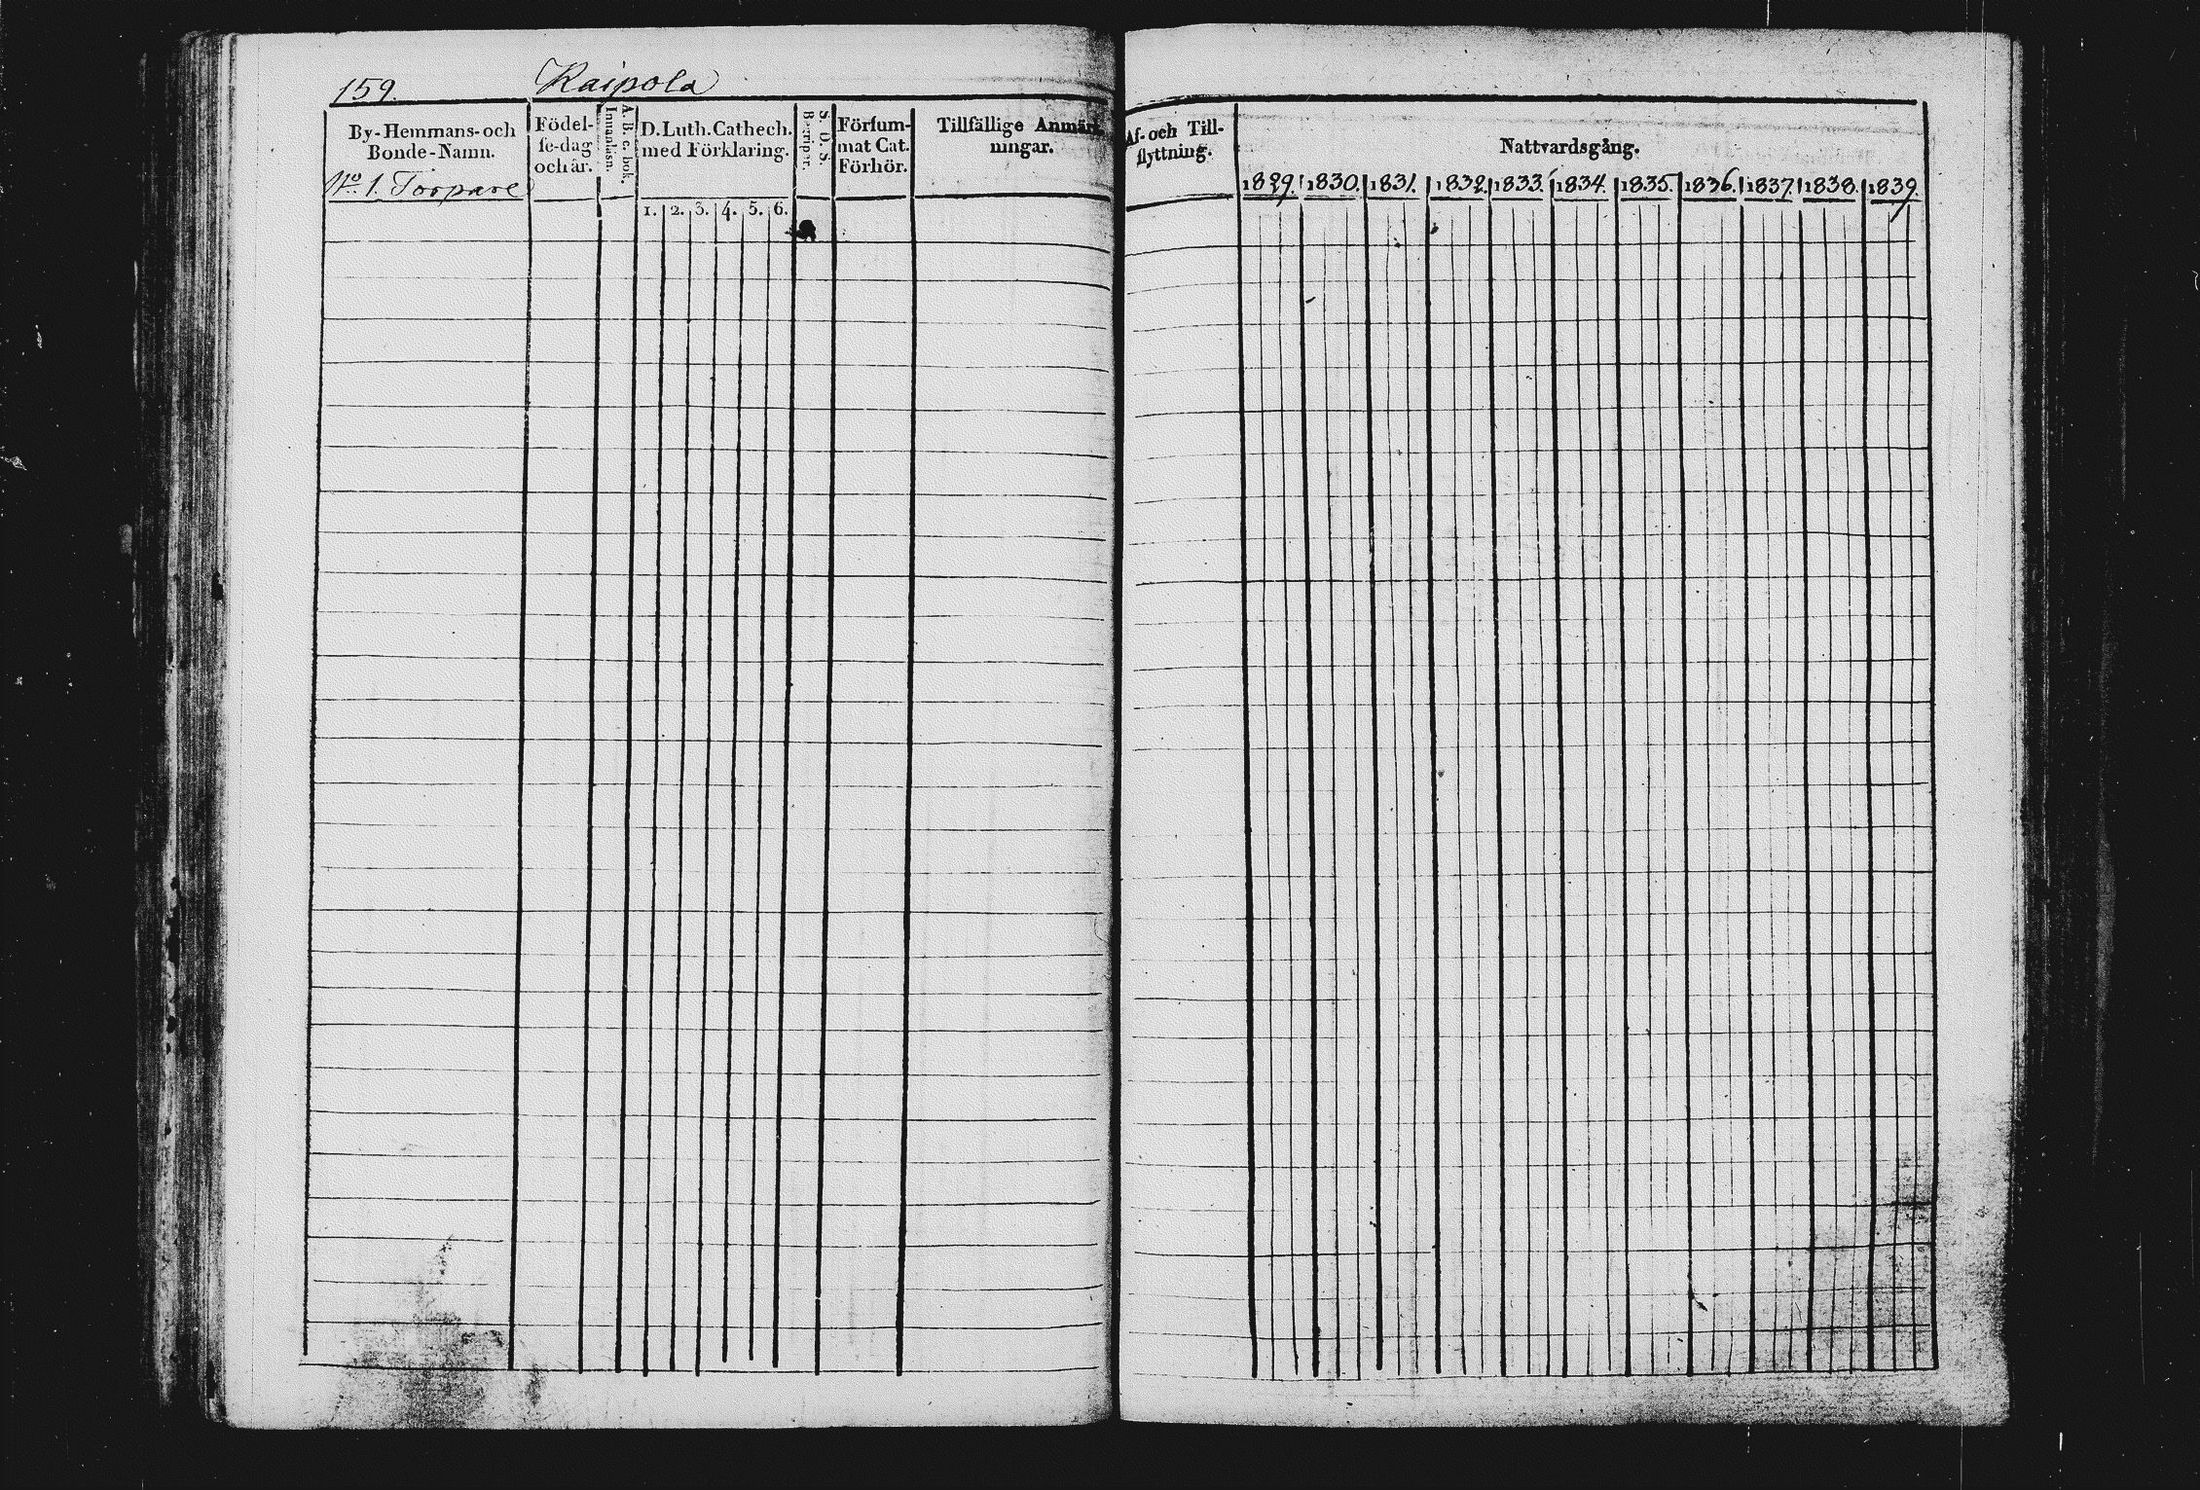 159. Kaipola
By-Hemmans-och
Bonde-Namn.
No 1. Torpare
Födel-
se-dag
och år.
A. B. c. bok.
Innanläsn.
D. Luth. Cathech.
med Förklaring.
1. 2. 3. 4. 5. 6.
S. O. S.
Begriper.
Försum-
mat Cat.
Förhör.
Tillfällige Anmärk
ningar.
Af- och Till-
flyttning.
Nattvardsgång.
1829. 1830. 1831. 1832. 1833. 1834. 1835. 1836. 1837. 1838. 1839.